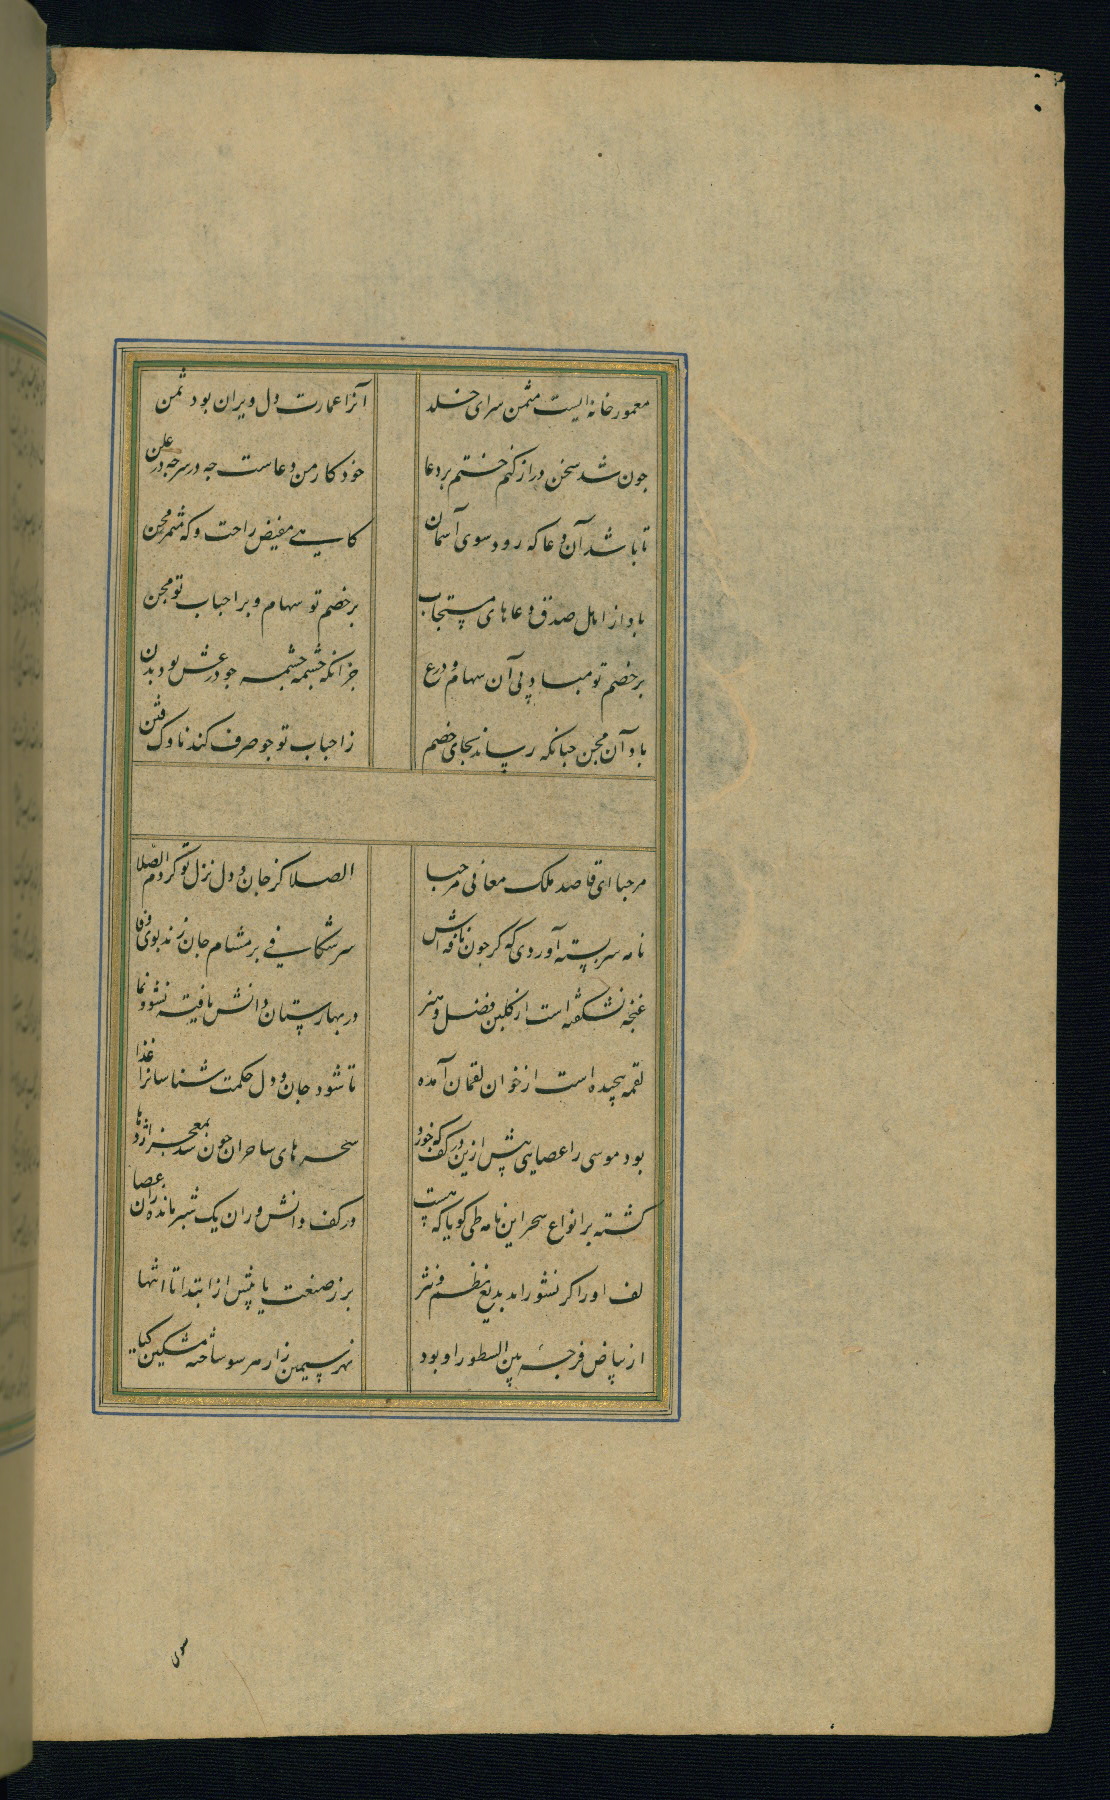 معمور خانه ایست مثمن سرای خلد آنرا عمارت دل ویران بود ثمن
چون شد سخن دراز کنم ختم بر دعا خود کار من دعاست چه در سر چه در علن
تا باشد آن دعا که رود سوی آسمان کاهی مفیض راحت و که مثمر محن
باد از اهل صدق دعاهای مستجاب بر خصم تو سهام و بر احباب تو مجن
بر خصم تو مباد پی آن سهام درع جز آنکه چشمه چشمه چو درعش بود بدن
باد آن مجن چنانکه رساند بجای خصم ز احباب تو چو صرف کند ناوک فتن
مرحبا ای قاصد ملک معانی مرحبا الصلا کز جان و دل نزل تو کردم الصلا
نامه سر بسته آوردی که کر چون نافه اش سر شکافی بر مشام جان زند بوی وفا
غنچه نشکفته است از کلبن فضل و هنر در بهارستان دانش یافته نشو و نما
لقمه پیچیده است از خوان لقمان آمده تا شود جان و دل حکمت شناسانرا غذا
بود موسی را عصایی پیش ازین در کف که خورد سحرهای ساحران چون شد بمعجز اژدها
کشته بر انواع سحر این نامه طی کویا که هست در کف دانشوران یک شبر مانده زان عصا
لف او را کر نشور آمد بدیع نظم و نثر پر ز صنعت یابیش از ابتدا تا انتها
از بیاض فرجه بین السطور او بود نهر سیمین زار هر سو ساخته مشکین کیا
سوی